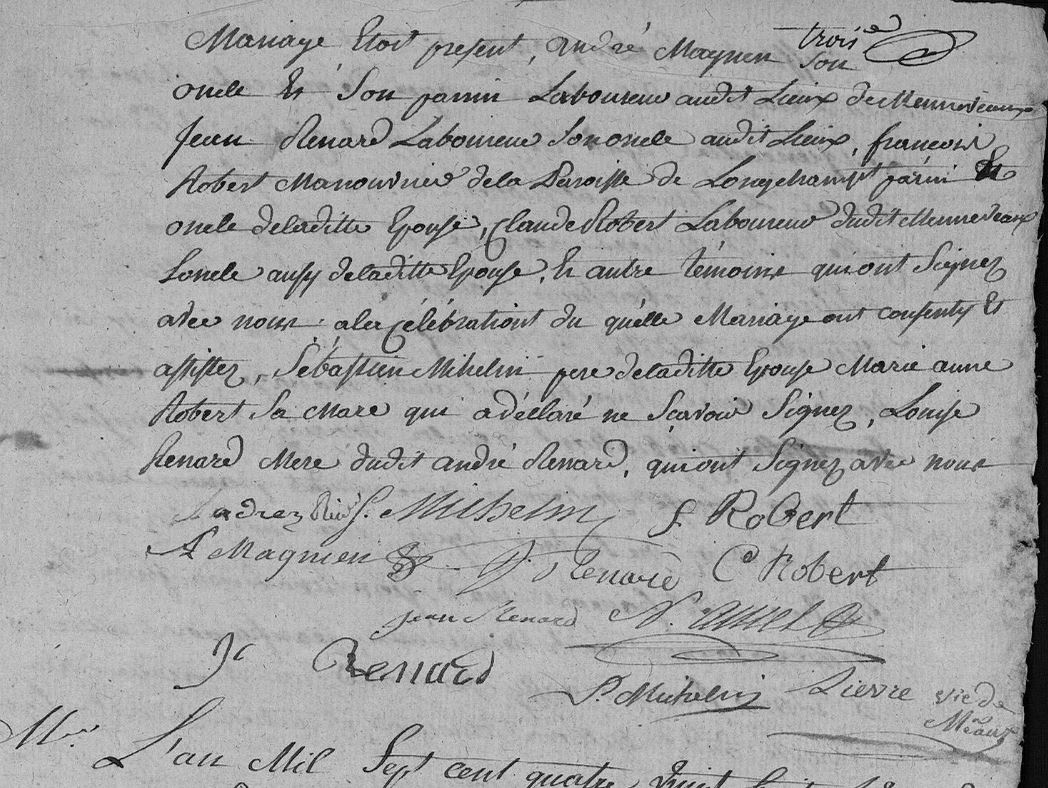 trois
Mariage Etoit present, André Magnien son
oncle Et Son parin Laboureur audit Lieux de Mennoveaux
Jean Renard Laboureur Son oncle audit Lieux, francois
Robert Manouvrier de la Paroisse de Longchampt parin Et
oncle deladitte Epouse, Claude Robert Laboureur dudit Mennoveaux
Loncle aussy deladitte Epouse, Et autre témoins qui ont Signez
avec nous a la Célébrationt du quelle Mariage ont consenty Et
assistez, Sébastien Mihelin pere deladitte Epouse Marie anne
Robert Sa Mare qui a déclaré ne Scavoir Signez, Louise
Renard Mere dudit andré Renard, qui ont Signez avec nous
S. Mihelin f. Robert
A Magnien Renard C Robert
jean Renard
Renard
P. Mihelin Pierre vic de
L'an Mil Sept cent quatre Vint